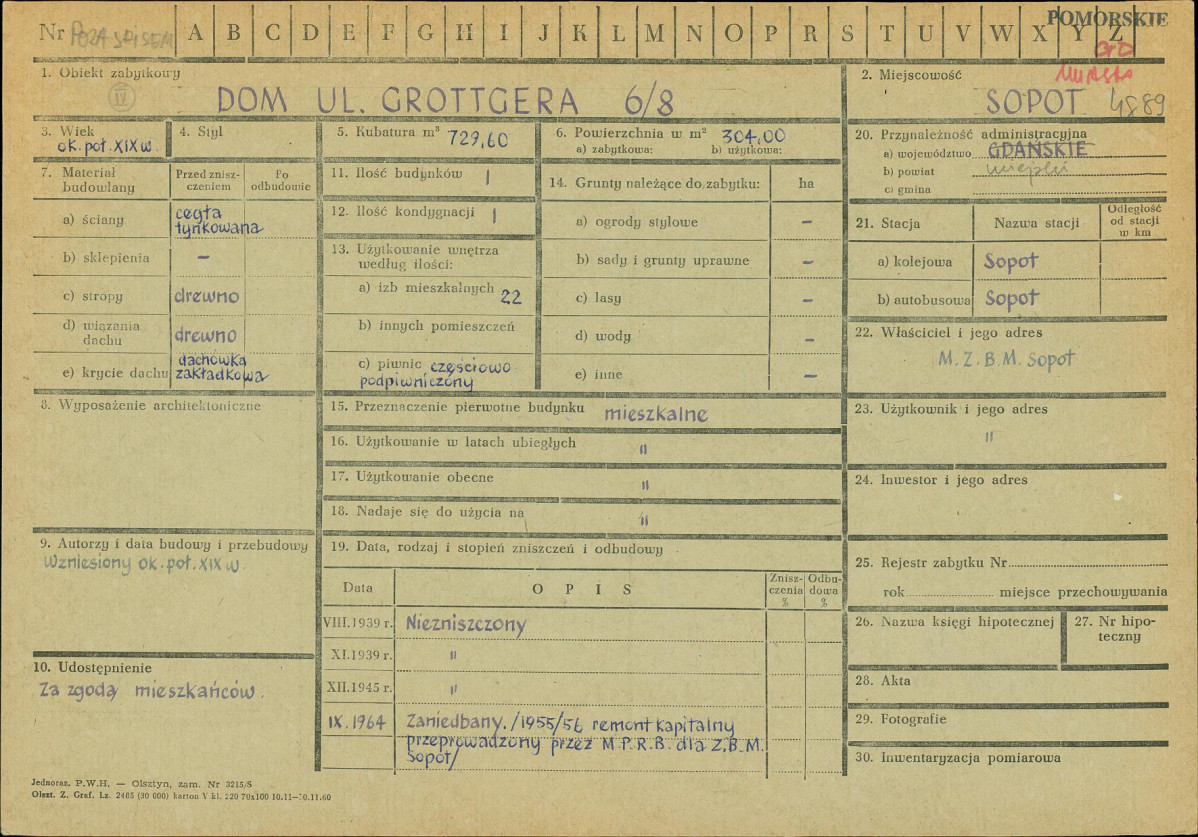 Nr POZA SPISEM A B C D E F G H I J K L M N O P R S T U V W X Y Z
POMORSKIE
1. Obiekt zabytkowy
IV
DOM UL. GROTTGERA 6/8
2. Miejscowość
SOPOT 4889
3. Wiek
ok. poł. XIX w.
4. Styl
5. Kubatura m³ 729,60
6. Powierzchnia w m² 304,00
a) zabytkowa: b) użytkowa:
20. Przynależność administracyjna
a) województwo GDAŃSKIE
b) powiat miejski
c) gmina
7. Materiał budowlany
Przed zniszczeniem
Po odbudowie
a) ściany cegła tynkowana
b) sklepienia –
c) stropy drewno
d) wiązania dachu drewno
e) krycie dachu dachówka zakładkowa
11. Ilość budynków 1
12. Ilość kondygnacji 1
13. Użytkowanie wnętrza
według ilości:
a) izb mieszkalnych 22
b) innych pomieszczeń
c) piwnic częściowo
podpiwniczony
14. Grunty należące do zabytku: ha
a) ogrody stylowe –
b) sady i grunty uprawne –
c) lasy –
d) wody –
e) inne –
21. Stacja Nazwa stacji Odległość od stacji w km
a) kolejowa Sopot
b) autobusowa Sopot
22. Właściciel i jego adres
M. Z. B. M. Sopot
8. Wyposażenie architektoniczne
15. Przeznaczenie pierwotne budynku mieszkalne
16. Użytkowanie w latach ubiegłych "
17. Użytkowanie obecne "
18. Nadaje się do użycia na "
23. Użytkownik i jego adres
"
24. Inwestor i jego adres
9. Autorzy i data budowy i przebudowy
Wzniesiony ok. poł. XIX w.
10. Udostępnienie
Za zgodą mieszkańców.
19. Data, rodzaj i stopień zniszczeń i odbudowy
Data OPIS Zniszczenia % Odbudowa %
VIII.1939 r. Niezniszczony
XI.1939 r. "
XII.1945 r. "
IX.1964 Zaniedbany. /1955/56 remont kapitalny
przeprowadzony przez M.P.R.B. dla Z.B.M.
Sopot/
25. Rejestr zabytku Nr
rok miejsce przechowywania
26. Nazwa księgi hipotecznej
27. Nr hipoteczny
28. Akta
29. Fotografie
30. Inwentaryzacja pomiarowa
Jednoraz. P.W.H. — Olsztyn, zam. Nr 3215/S
Olszt. Z. Graf. Lz. 2485 (30 000) karton V kl. 220 70x100 10.11—30.11.60